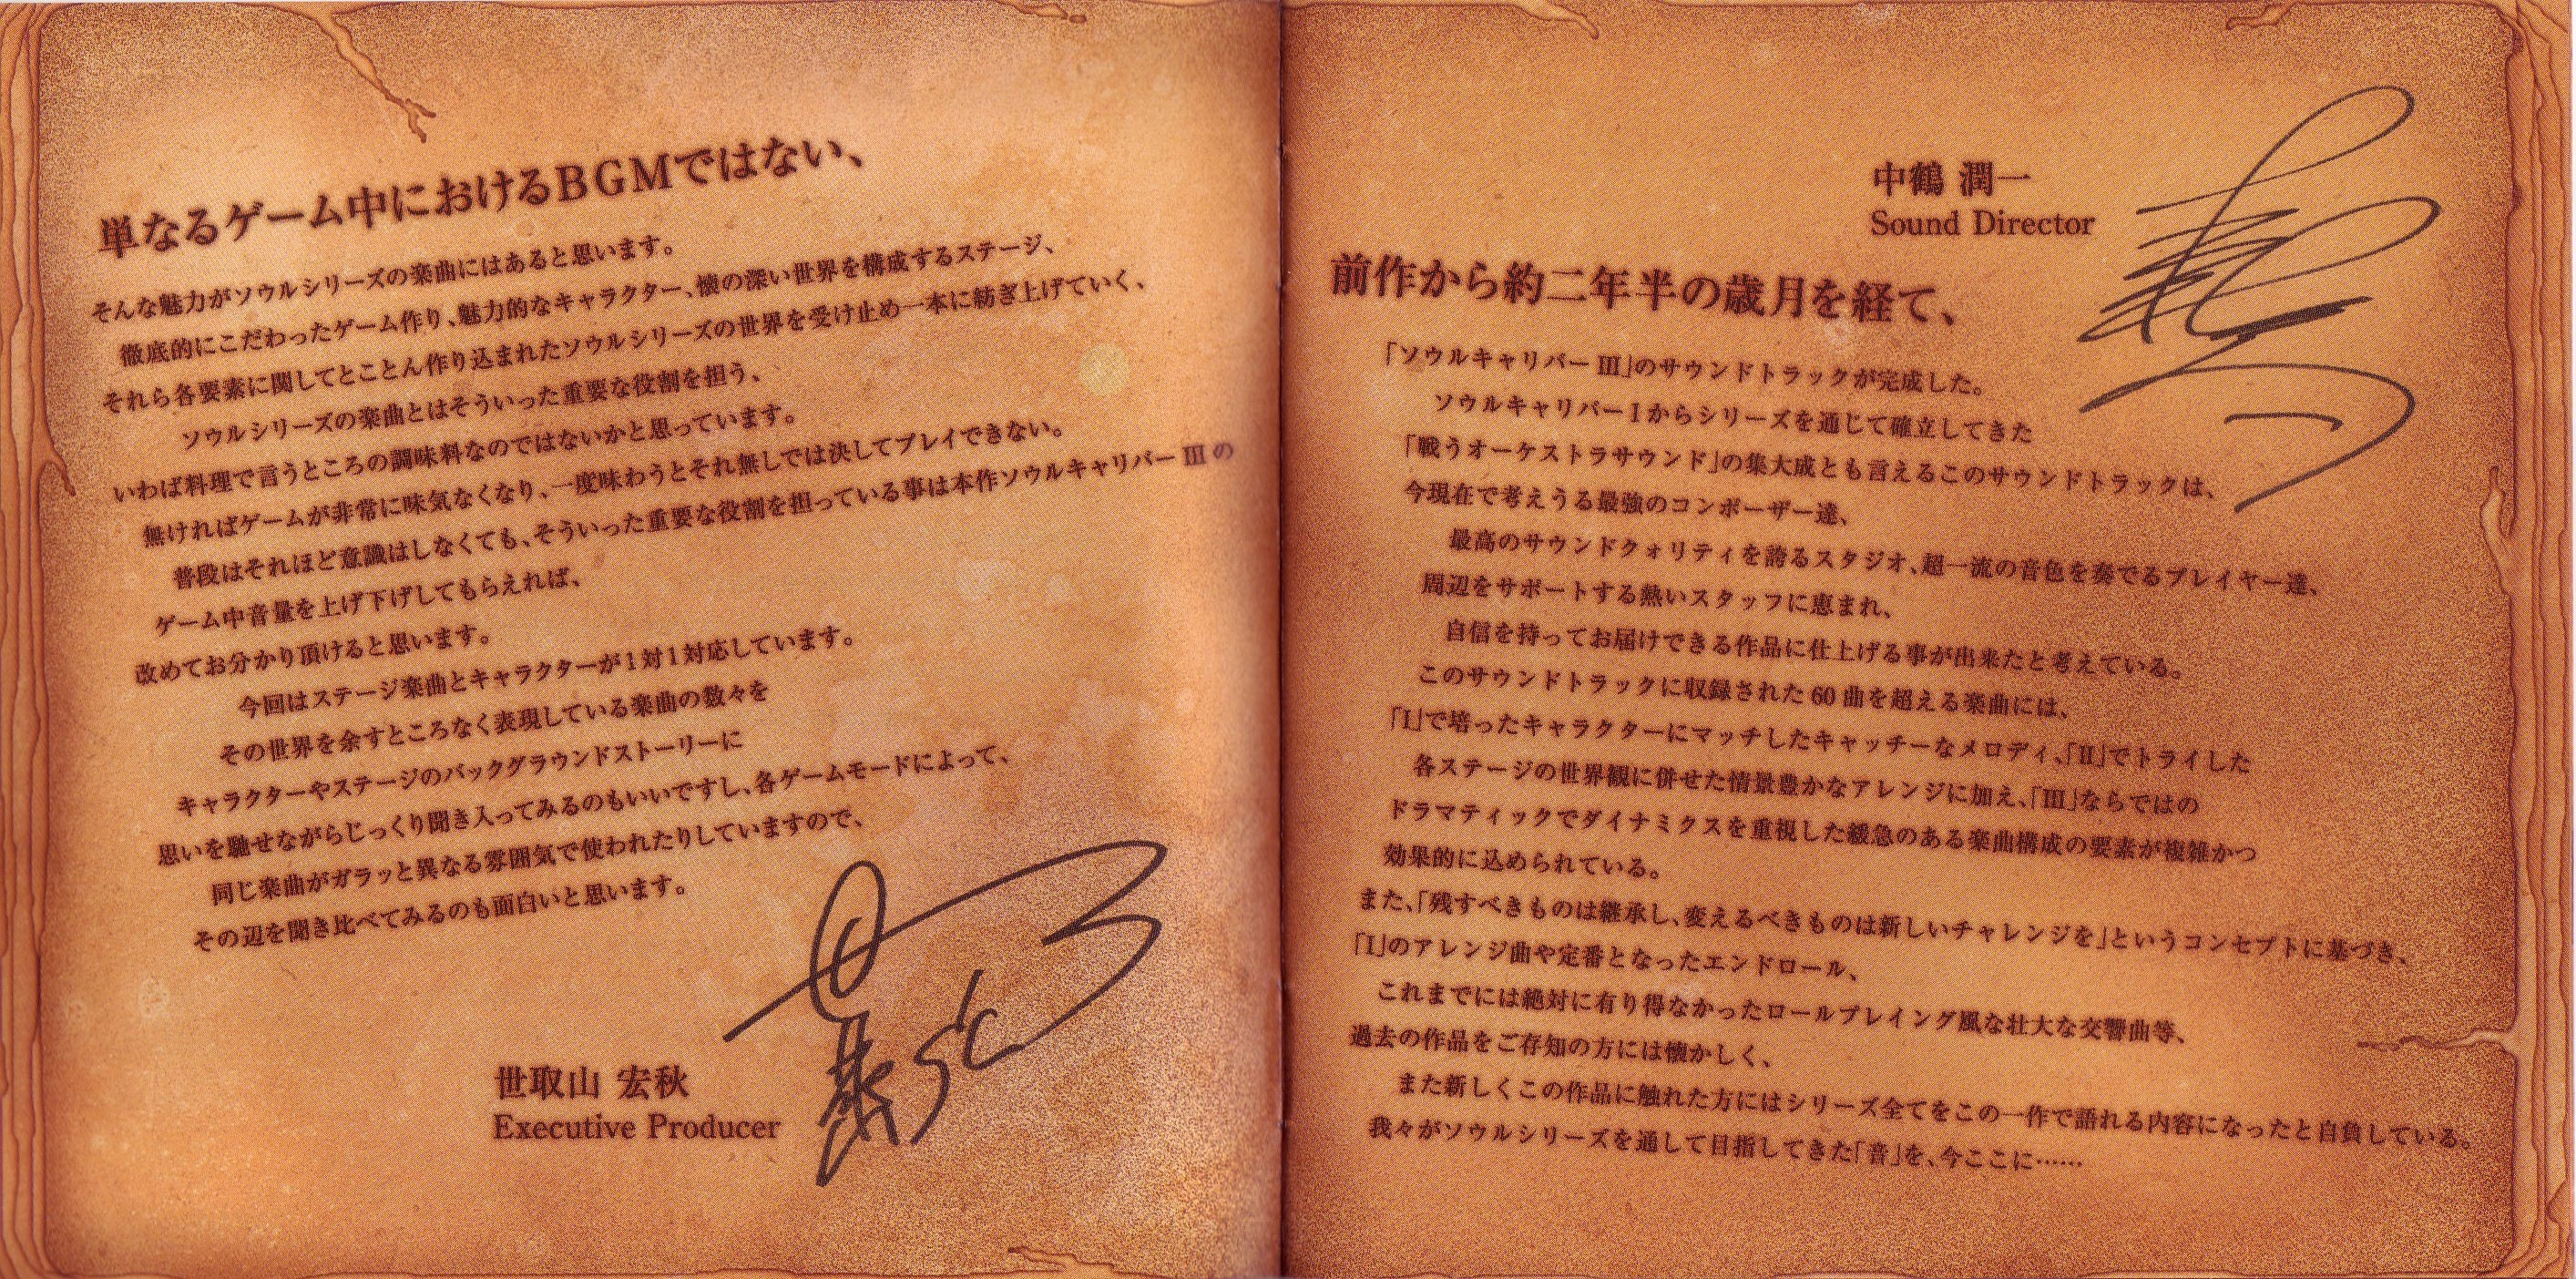 単なるゲーム中におけるBGMではない、
そんな魅力がソウルシリーズの楽曲にはあると思います。
徹底的にこだわったゲーム作り、魅力的なキャラクター、懐の深い世界を構成するステージ、
それら各要素に関してとことん作り込まれたソウルシリーズの世界を受け止め一本に紡ぎ上げていく、
ソウルシリーズの楽曲とはそういった重要な役割を担う、
いわば料理で言うところの調味料なのではないかと思っています。
無ければゲームが非常に味気なくなり、一度味わうとそれ無しでは決してプレイできない。
普段はそれほど意識はしなくても、そういった重要な役割を担っている事は本作ソウルキャリバーIIIの
ゲーム中音量を上げ下げしてもらえれば、
改めてお分かり頂けると思います。
今回はステージ楽曲とキャラクターが1対1対応しています。
その世界を余すところなく表現している楽曲の数々を
キャラクターやステージのバックグラウンドストーリーに
思いを馳せながらじっくり聞き入ってみるのもいいですし、各ゲームモードによって、
同じ楽曲がガラッと異なる雰囲気で使われたりしていますので、
その辺を聞き比べてみるのも面白いと思います。
世取山 宏秋
Executive Producer
中鶴 潤一
Sound Director
前作から約二年半の歳月を経て、
「ソウルキャリバーIII」のサウンドトラックが完成した。
ソウルキャリバーIからシリーズを通じて確立してきた
「戦うオーケストラサウンド」の集大成とも言えるこのサウンドトラックは、
今現在で考えうる最強のコンポーザー達、
最高のサウンドクォリティを誇るスタジオ、超一流の音色を奏でるプレイヤー達、
周辺をサポートする熱いスタッフに恵まれ、
自信を持ってお届けできる作品に仕上げる事が出来たと考えている。
このサウンドトラックに収録された60曲を超える楽曲には、
「I」で培ったキャラクターにマッチしたキャッチーなメロディ、「II」でトライした
各ステージの世界観に併せた情景豊かなアレンジに加え、「III」ならではの
ドラマティックでダイナミクスを重視した緩急のある楽曲構成の要素が複雑かつ
効果的に込められている。
また、「残すべきものは継承し、変えるべきものは新しいチャレンジを」というコンセプトに基づき、
「I」のアレンジ曲や定番となったエンドロール、
これまでには絶対に有り得なかったロールプレイング風な壮大な交響曲等、
過去の作品をご存知の方には懐かしく、
また新しくこの作品に触れた方にはシリーズ全てをこの一作で語れる内容になったと自負している。
我々がソウルシリーズを通して目指してきた「音」を、今ここに……